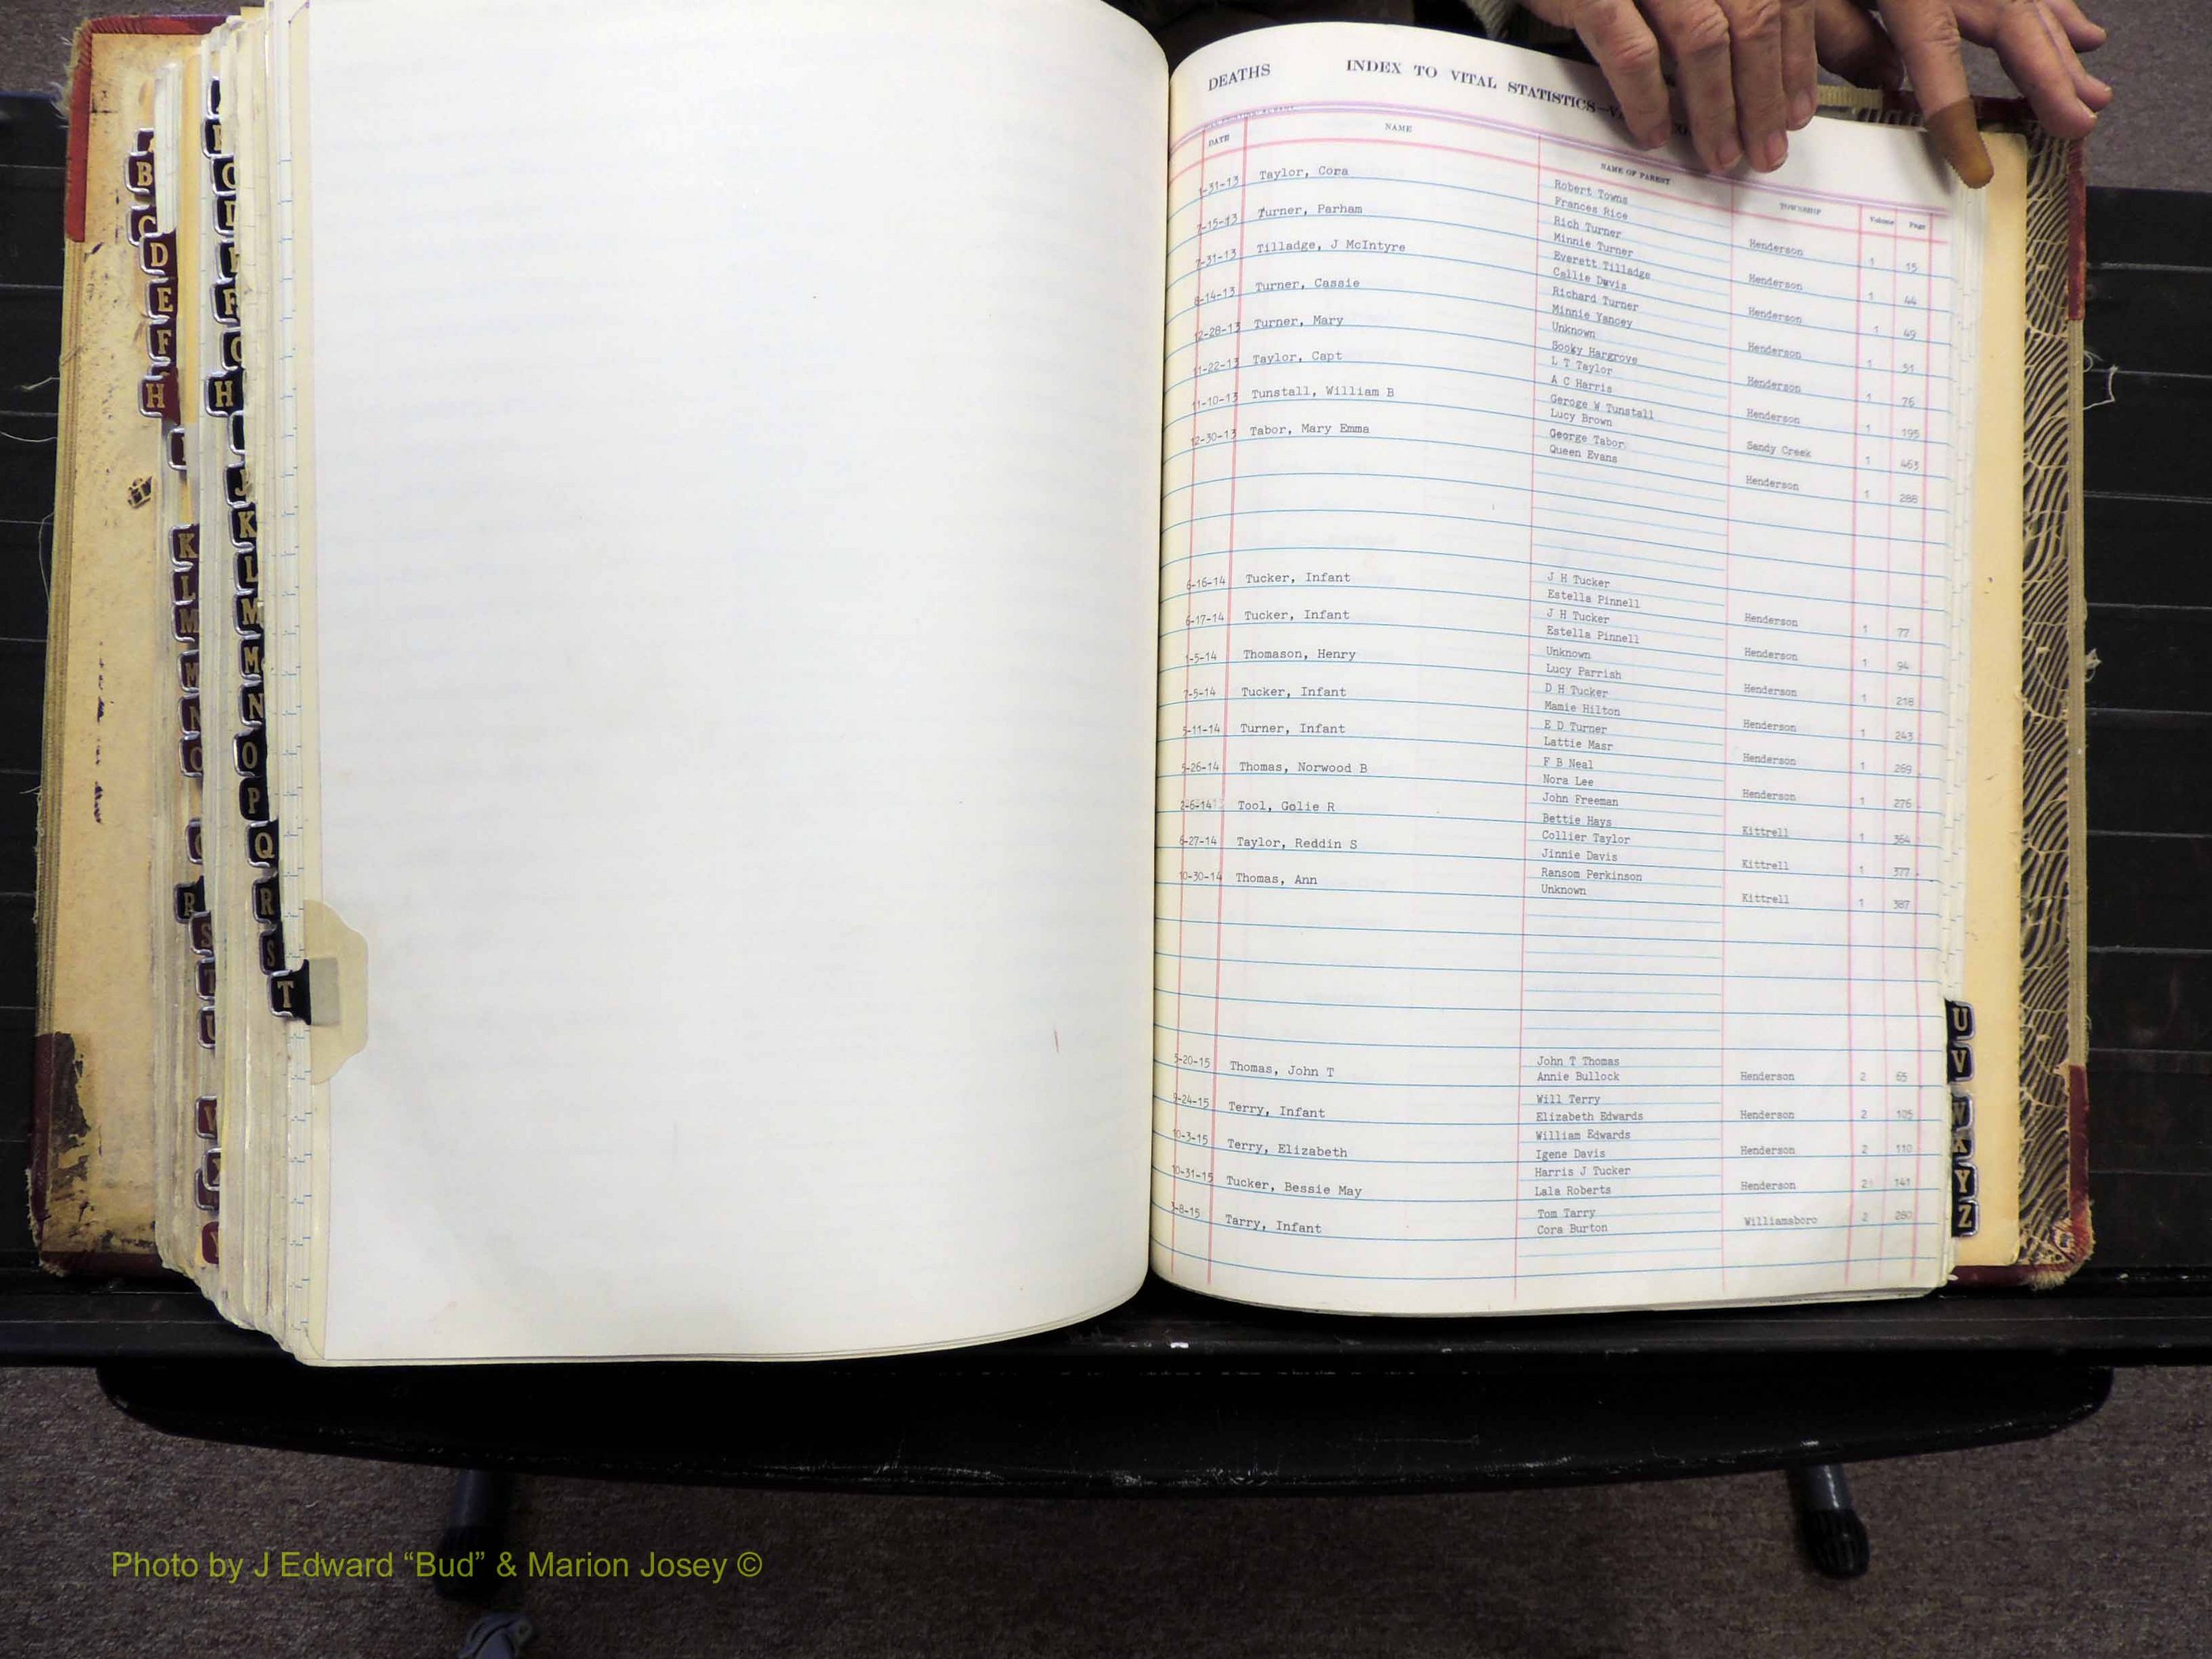 DEATHS INDEX TO VITAL STATISTICS
DATE NAME NAME OF PARENT TOWNSHIP Volume Page
1-31-13 Taylor, Cora Robert Towns
Frances Rice Henderson 1 15
7-15-13 Turner, Parham Rich Turner
Minnie Turner Henderson 1 44
7-31-13 Tilladge, J McIntyre Everett Tilladge
Callie Davis Henderson 1 49
8-14-13 Turner, Cassie Richard Turner
Minnie Yancey Henderson 1 51
12-28-13 Turner, Mary Unknown
Sooky Hargrove Henderson 1 76
11-22-13 Taylor, Capt L T Taylor
A C Harris Henderson 1 195
11-10-13 Tunstall, William B Geroge W Tunstall
Lucy Brown Sandy Creek 1 463
12-30-13 Tabor, Mary Emma George Tabor
Queen Evans Henderson 1 288
6-16-14 Tucker, Infant J H Tucker
Estella Pinnell Henderson 1 77
6-17-14 Tucker, Infant J H Tucker
Estella Pinnell Henderson 1 94
1-5-14 Thomason, Henry Unknown
Lucy Parrish Henderson 1 218
7-5-14 Tucker, Infant D H Tucker
Mamie Hilton Henderson 1 243
5-11-14 Turner, Infant E D Turner
Lattie Masr Henderson 1 269
5-26-14 Thomas, Norwood B F B Neal
Nora Lee Henderson 1 276
2-6-14 Tool, Golie R John Freeman
Bettie Hays Kittrell 1 364
6-27-14 Taylor, Reddin S Collier Taylor
Jinnie Davis Kittrell 1 377
10-30-14 Thomas, Ann Ransom Perkinson
Unknown Kittrell 1 387
5-20-15 Thomas, John T John T Thomas
Annie Bullock Henderson 2 65
9-24-15 Terry, Infant Will Terry
Elizabeth Edwards Henderson 2 105
10-3-15 Terry, Elizabeth William Edwards
Igene Davis Henderson 2 110
10-31-15 Tucker, Bessie May Harris J Tucker
Lala Roberts Henderson 2 141
-8-15 Tarry, Infant Tom Tarry
Cora Burton Williamsboro 2 280
B
D
E
F
H
K
L
M
M
N
R
S
T
U
H
J
K
L
M
M
N
O
P
Q
R
S
T
U
V
Y
Z
Photo by J Edward “Bud” & Marion Josey ©